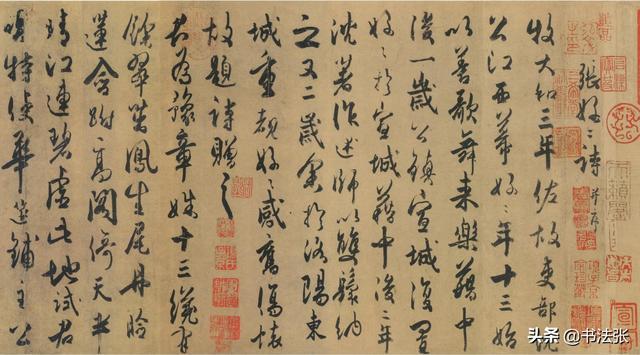 張好〻詩 并序
牧大和三年佐故吏部沈
公江西幕好〻年十三始
以善歌舞來樂籍中
後一歲公鎮宣城復置
好〻於宣城籍中後二年
沈著作述師以雙鬟納
之又二歲余於洛陽東
城重覩好〻感舊傷懷
故題詩贈之
君為豫章姝十三纔有
餘翠茁鳳生尾丹臉
蓮含跗高閣倚天半
晴江連碧虛此地試君
唱特使華筵鋪主公
头条 @书法张